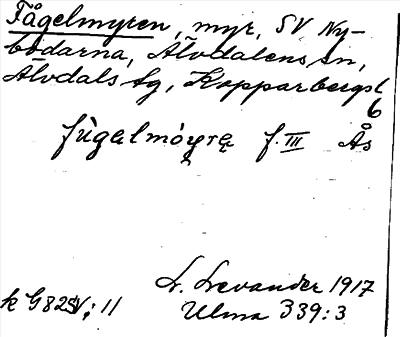 Fågelmyren, myr, SV Ny-
bodarna, Älvdalens sn,
Älvdals tg, Kopparbergs l
6
fùgelmóyrę f. III Ås
L. Levander 1917
k G82SV; 11 Ulma 339:3